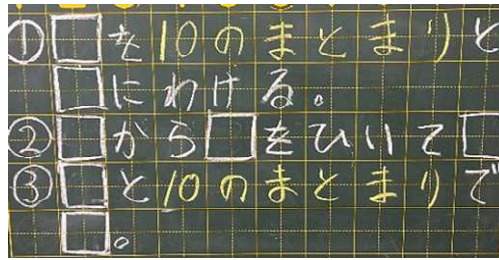 ①□を10のまとまりと
□にわける。
②□から□をひいて□
③□と10のまとまりで
□。